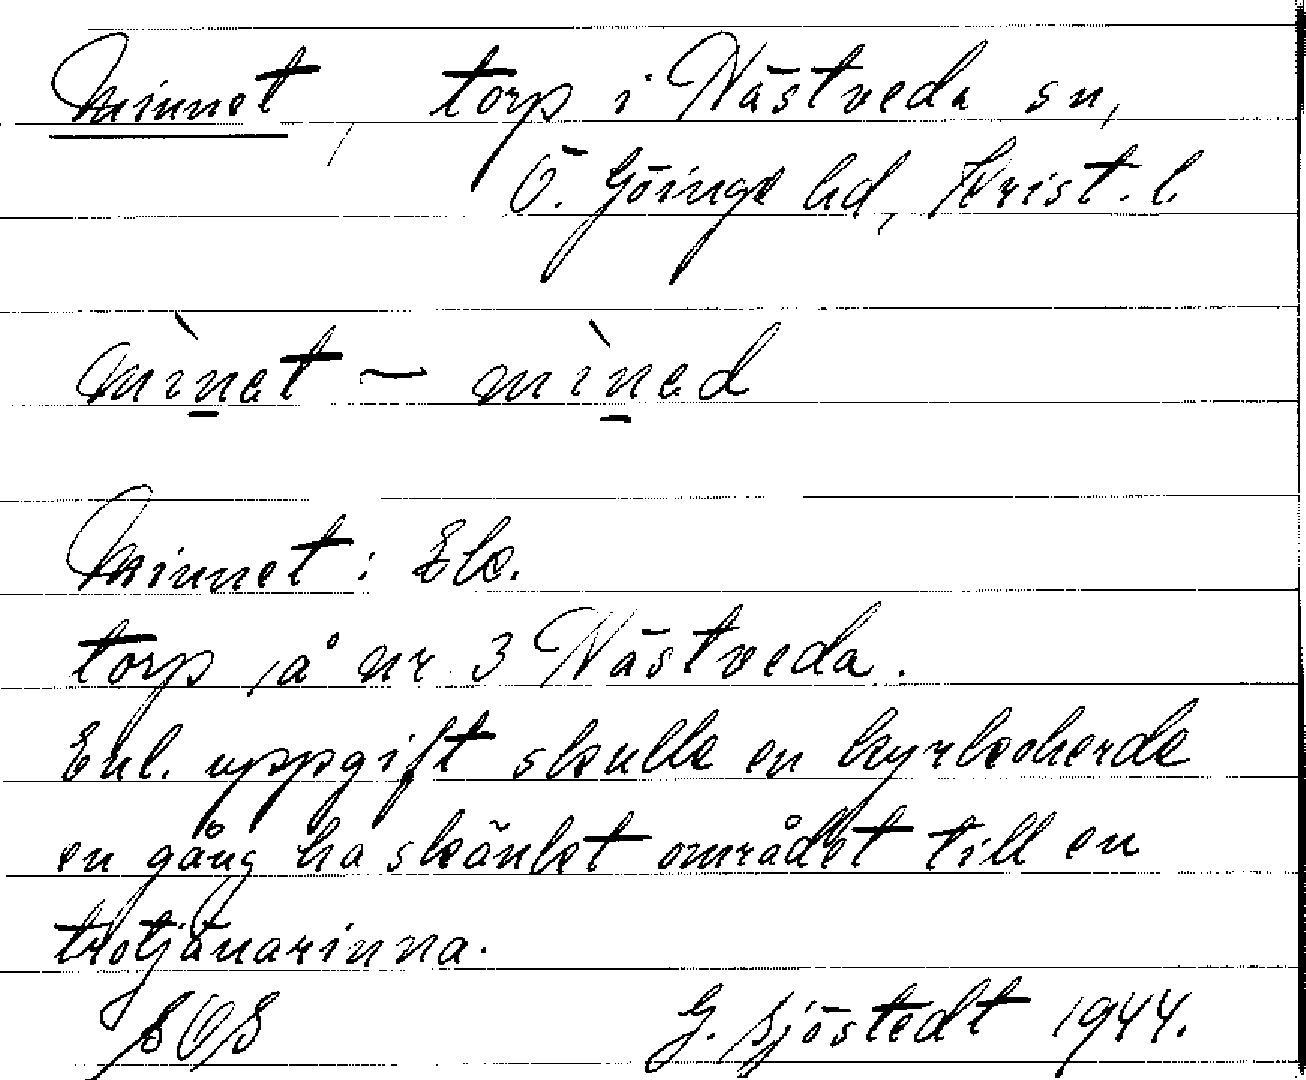 Minnet, torp i Nästveda sn,
Ö. Göinge hd, Krist. l.
mìnet — mìned
Minnet: Ek.
torp å nr 3 Nästveda.
Enl. uppgift skulle en kyrkoherde
en gång ha skänkt området till en
trotjänarinna.
G. Sjöstedt 1944.